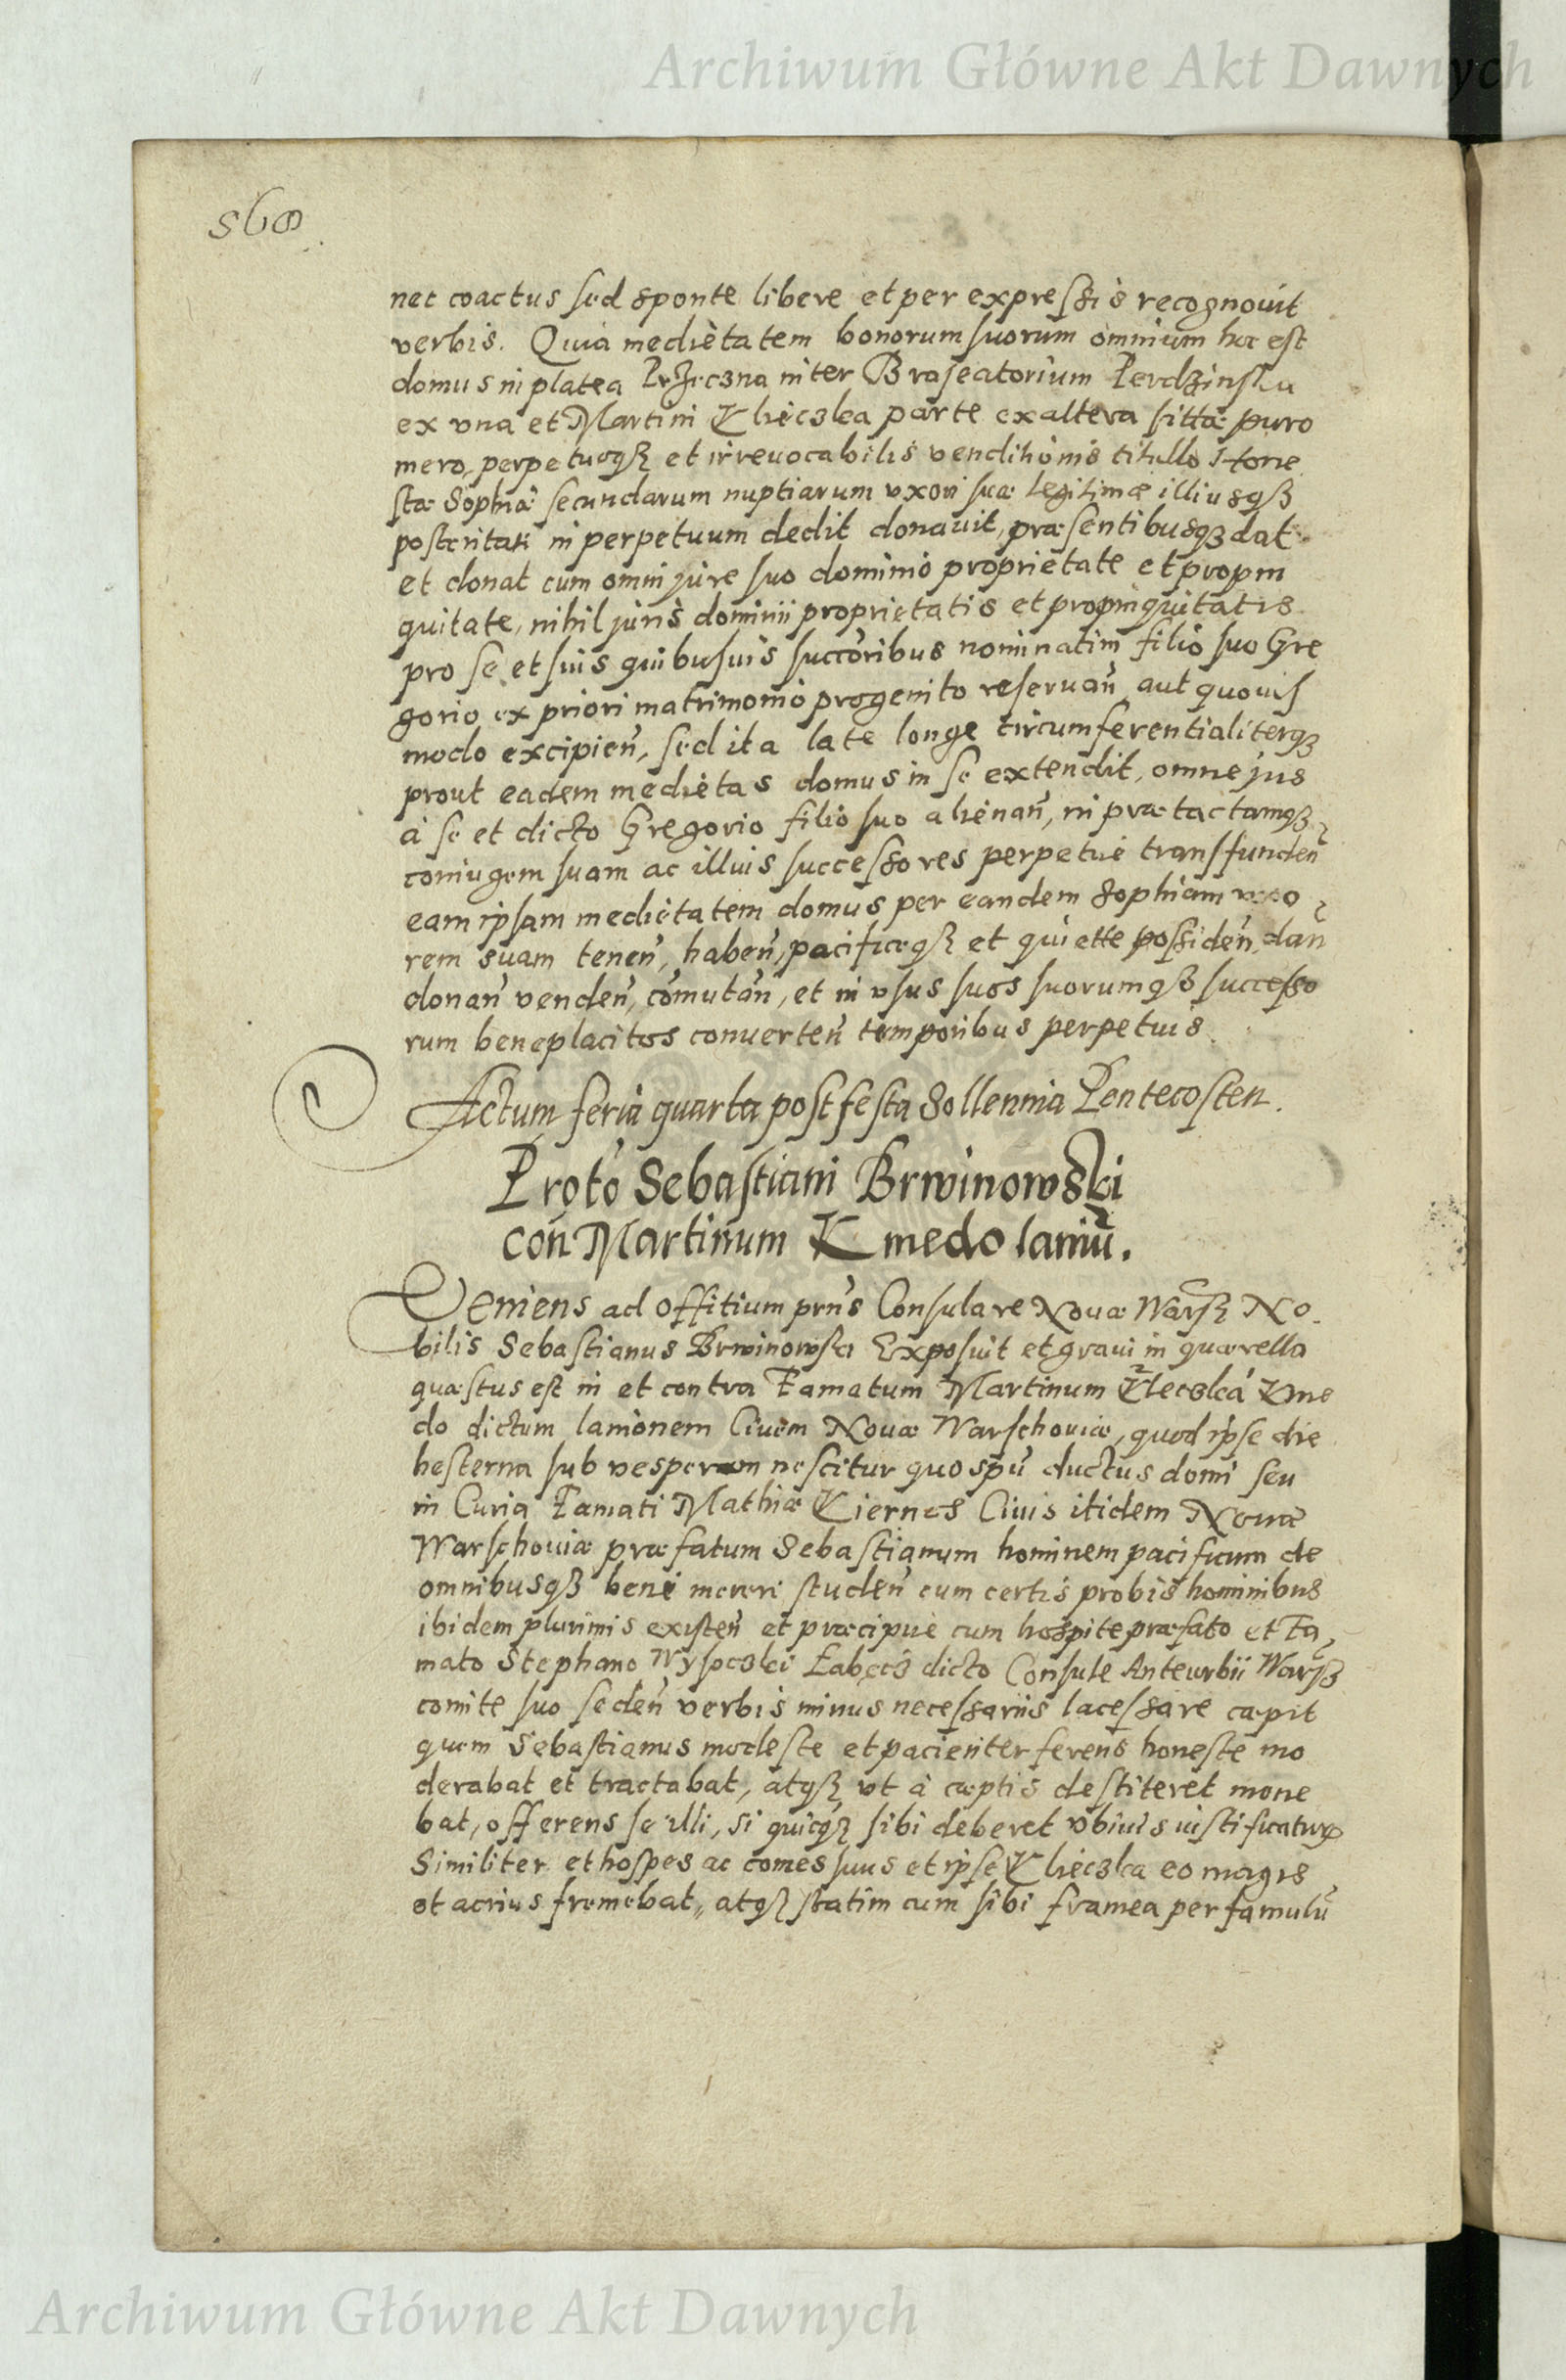 Archiwum Główne Akt Dawnych
560
nec coactus sed sponte libere et per expressis recognouit
verbis. Quia medietatem bonorum suorum omnium hoc est
domus in platea inter Braseatorium
ex vna et Martini Khieczka parte ex altera sittæ puro
mero, perpetuoqȝ et irreuocabilis venditionis titullo Hone
stæ Sophiæ secundarum nuptiarum vxori suæ legitimæ illiusqȝ
posteritati in perpetuum dedit donauit, præsentibusqȝ dat
et donat cum omni jure suo dominio proprietate et propin
quitate, nihil juris dominii proprietatis et propinquitatis
pro se et suis quibusuis succoribus nominatim filio suo Gre
gorio ex priori matrimonio progenito reseruan̄ aut quouis
modo excipien̄, sed ita late longe circumferentialiterqȝ
prout eadem medietas domus in se extendit, omne jus
à se et dicto Gregorio filio suo alienan̄, in prætactamqȝ
coniugem suam ac illius successores perpetue transfunden̄
eam ipsam medietatem domus per eandem Sophiam vxo
rem suam tenen̄, haben̄, pacificeqȝ et quiette possiden̄, dan̄
donan̄ venden̄, com̄utan̄, et in vsus suos suorumqȝ successo
rum beneplacitos conuerten̄ temporibus perpetuis.
Actum feria quarta post festa Sollennia Pentecosten.
Proto Sebastiani Brwinowski
con Martinum Kmedo laniū.
Veniens ad Offitium prn̄s Consulare Nouæ Warsȝ No
bilis Sebastianus Brwinowski Exposuit et graui in quærella
quæstus est in et contra Famatum Martinum Klieczka Kme
do dictum lanionem Ciuem Nouæ Warschouiæ, quod ipse die
hesterna sub vesperum nescitur quo spū ductus domi seu
in Curia Famati Mathiæ Kiernos Ciuis itidem Nouæ
Warschouiæ præfatum Sebastianum hominem pacificum de
omnibusqȝ bene mereri studen̄ cum certis probis hominibus
ibidem plurimis existen̄ et præcipue cum hospite præfato et Fa
mato Stephano Wysoczki Łabęcz dicto Consule Anteurbii Warsȝ
comite suo seden̄ verbis minus necessariis lacessare cæpit
quem Sebastianus modeste et pacienter ferens honeste mo
derabat et tractabat, atqȝ vt à cæptis destiteret mone
bat, offerens se illi, si quicqȝ sibi deberet vbiuis iustificatur
Similiter et hospes ac comes suus et ipse Khieczka eo magis
et acrius fremebat, atqȝ statim cum sibi framea per famulū
Archiwum Główne Akt Dawnych